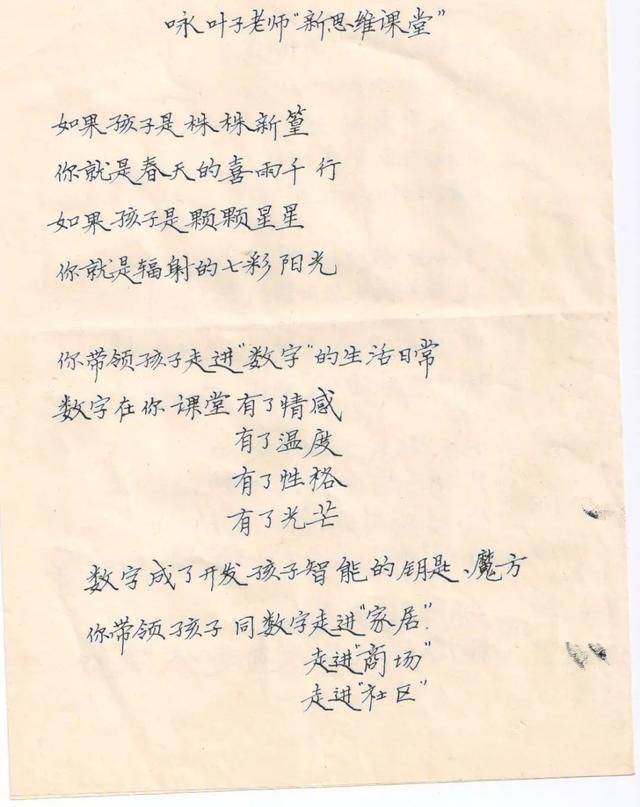 咏叶子老师"新思维课堂"
如果孩子是株株新篁
你就是春天的喜雨千行
如果孩子是颗颗星星
你就是辐射的七彩阳光
你带领孩子走进"数字"的生活日常
数字在你课堂有了情感
有了温度
有了性格
有了光芒
数字成了开发孩子智能的钥匙、魔方
你带领孩子同数字走进"家居".
走进"商场"
走进"社区"